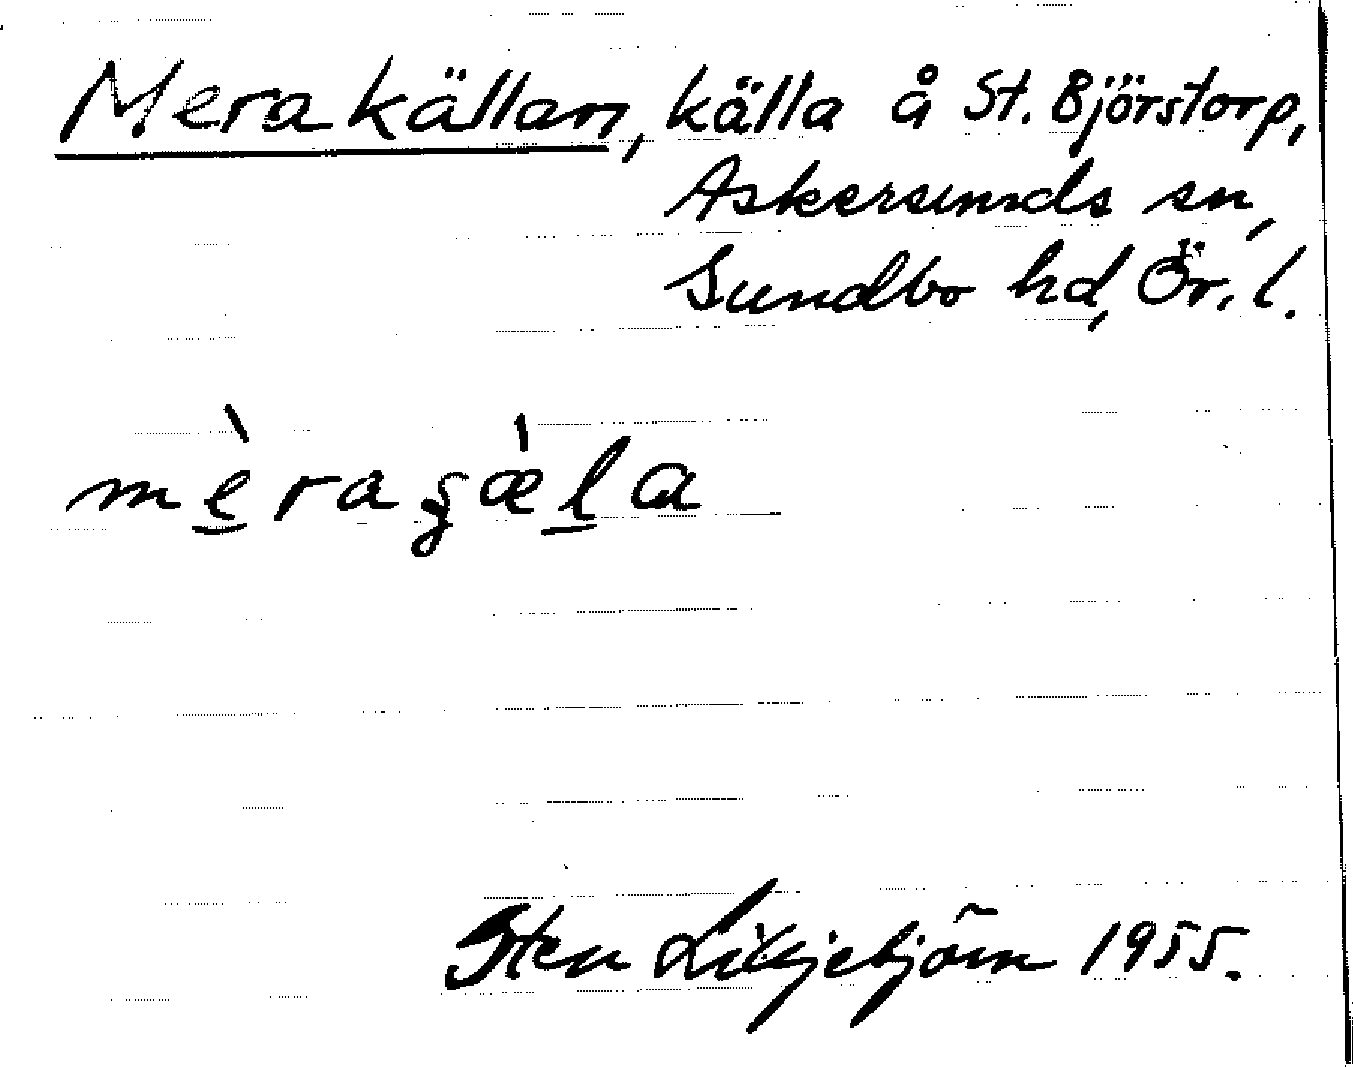 Merakällan, källa å St. Björstorp,
Askersunds sn,
Sundbo hd, Ör. l.
Sten Liljebjörn 1955.